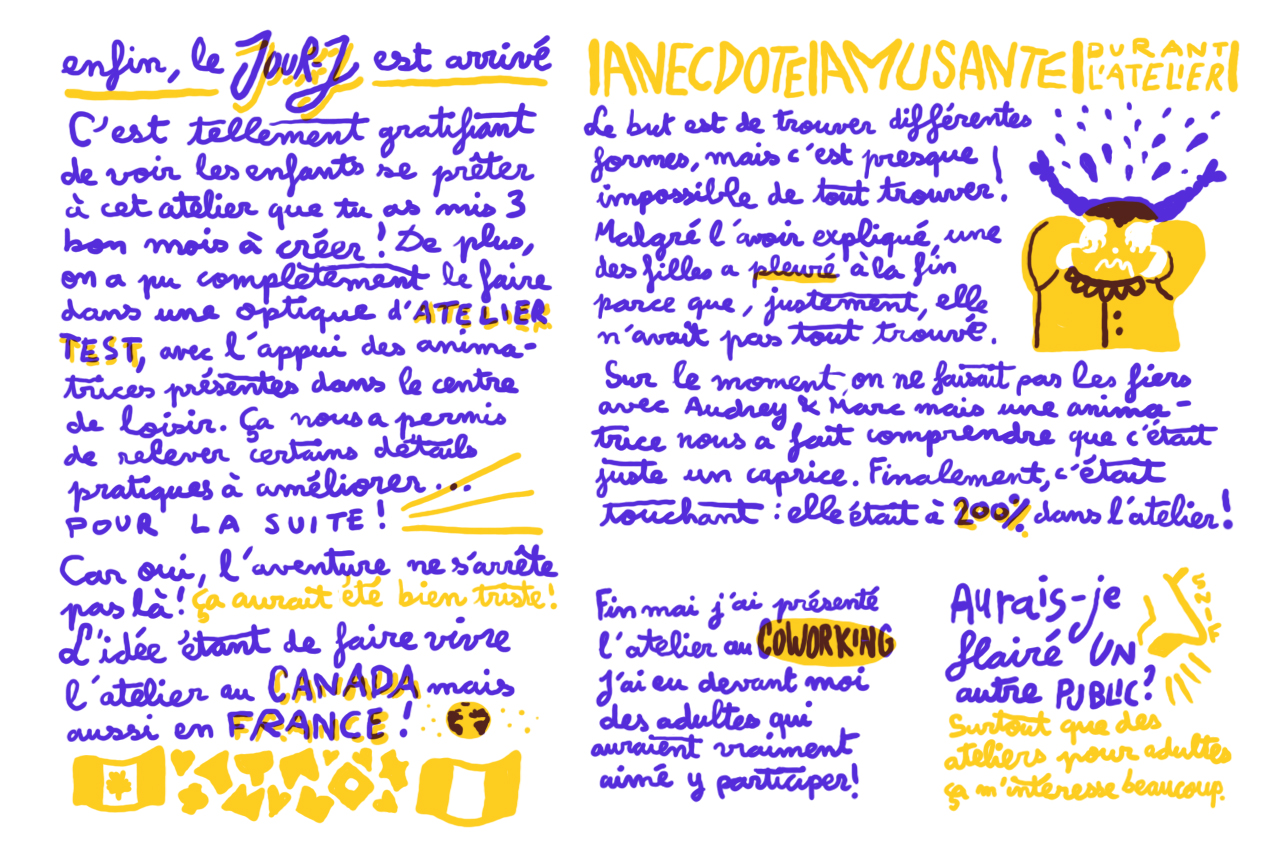 enfin, le JOUR-J est arrivé
C'est tellement gratifiant
de voir les enfants se prêter
à cet atelier que tu as mis 3
bon mois à créer ! De plus,
on a pu complètement le faire
dans une optique d'ATELIER
TEST, avec l'appui des anima-
trices présentes dans le centre
de loisir. Ça nous a permis
de relever certains détails
pratiques à améliorer...
POUR LA SUITE !
Car oui, l'aventure ne s'arrête
pas là ! ça aurait été bien triste !
L'idée étant de faire vivre
l'atelier au CANADA mais
aussi en FRANCE !
|ANECDOTE|AMUSANTE|DURANT L'ATELIER|
Le but est de trouver différentes
formes, mais c'est presque
impossible de tout trouver !
Malgré l'avoir expliqué, une
des filles a pleuré à la fin
parce que, justement, elle
n'avait pas tout trouvé.
Sur le moment, on ne faisait pas les fiers
avec Audrey & Marc mais une anima-
trice nous a fait comprendre que c'était
juste un caprice. Finalement, c'était
touchant : elle était à 200% dans l'atelier !
Fin mai j'ai présenté
l'atelier au COWORKING
J'ai eu devant moi
des adultes qui
auraient vraiment
aimé y participer !
Aurais-je
flairé UN
autre PUBLIC ?
SNIF
Surtout que des
ateliers pour adultes
ça m'intéresse beaucoup.